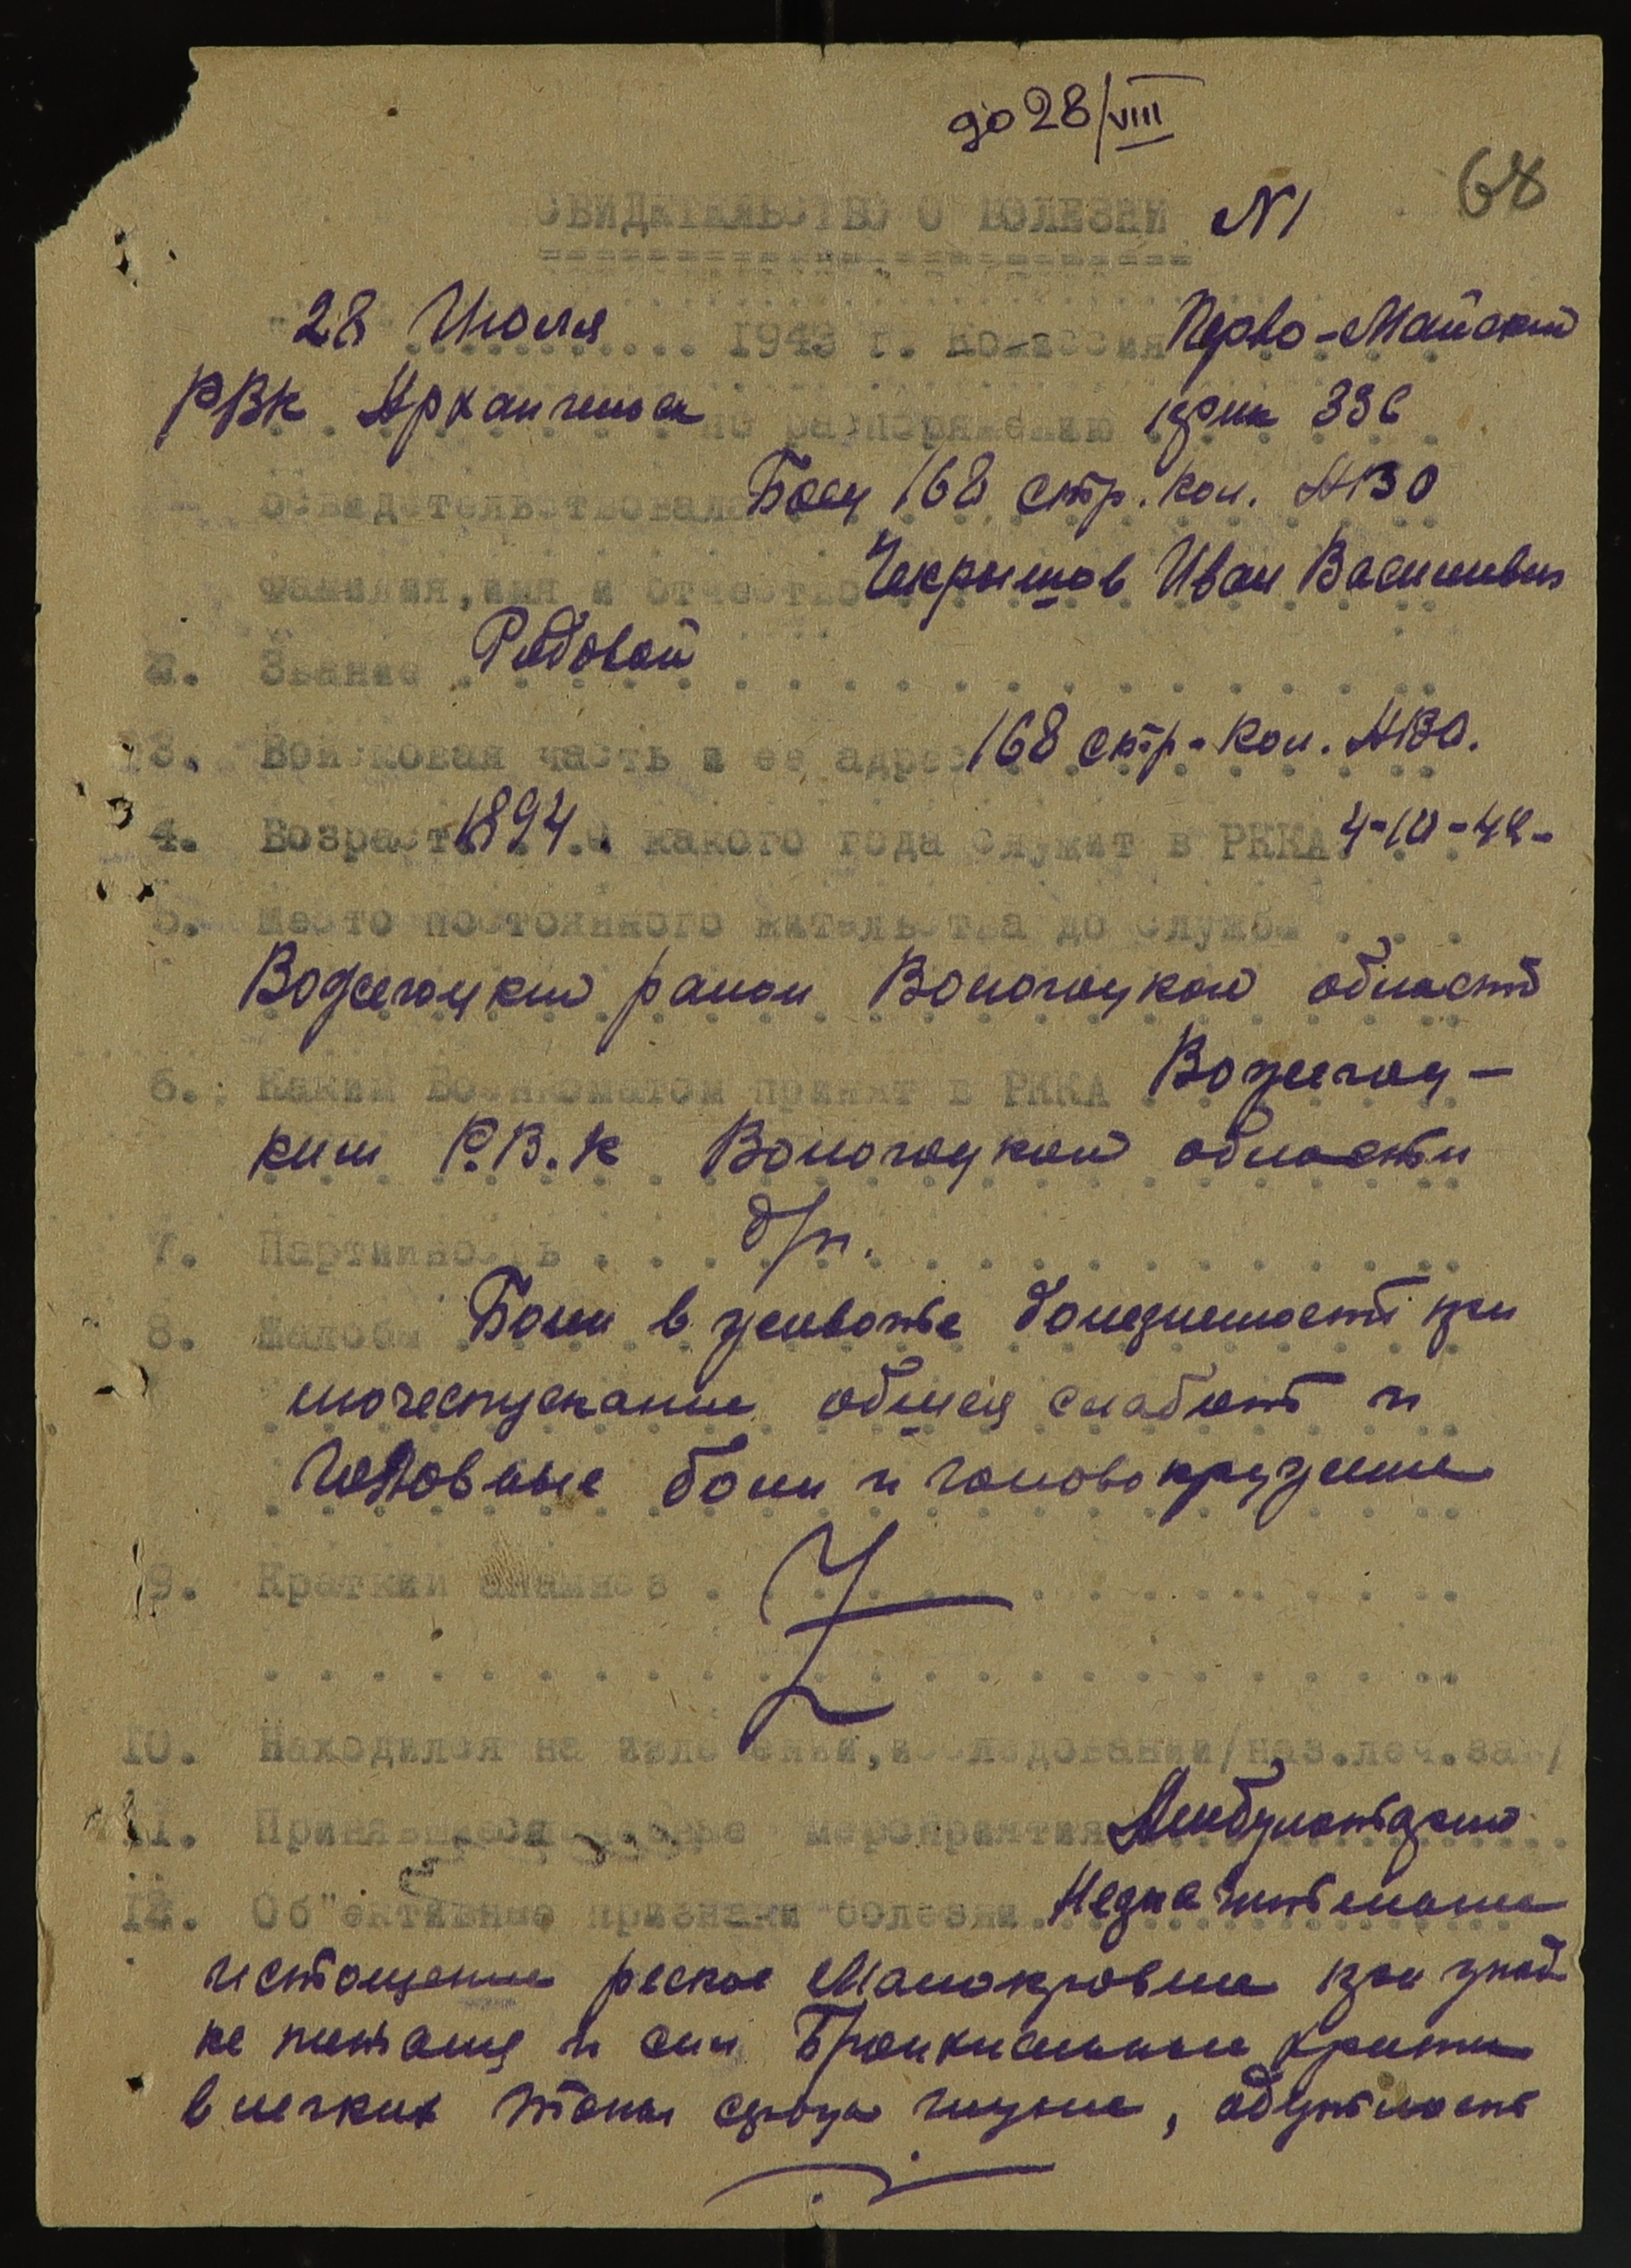 до 28/VIII
68
СВИДЕТЕЛЬСТВО О БОЛЕЗНИ N1
28 Июля 1943 г. Комиссия Перво-Майский
РВК Архангельск по распоряжению
освидетельствовала Боец 168 стр. кол. АВО
фамилия, имя и отчество Чекрышов Иван Васильевич
2. Звание Рядовой
3. Войсковая часть и ее адрес 168 стр-кол. АВО.
4. Возраст 1894. С какого года служит в РККА 4-10-42-
5. Место постоянного жительства до службы
Вожегоцкий район Вологоцкой области
6. Каким Военкоматом принят в РККА Вожегоц-
ким Р.В.К Вологоцкой области
7. Партийность б/п.
8. Жалобы Боли в животе болезненость при
мочеспускание общея слабость и
головные боли и головокружение
9. Краткий анамнез
10. Находился на излечении, исследовании/наз.леч.зав/
11. мероприятия Амбулаторно
12. Об"ективные признаки болезни
истощение реское Малокровие при упад
ке питания и сил
в легких тоны сердца глухие, одутлость